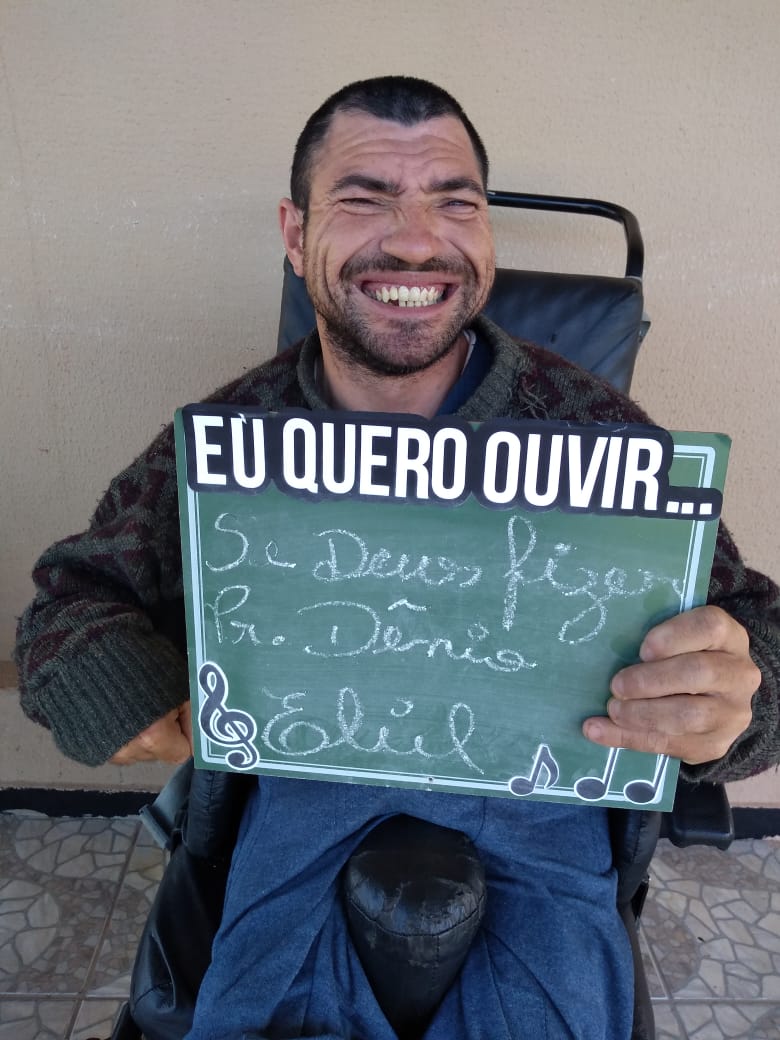 EU QUERO OUVIR...
Se Deus fizer
Pr. Dênio
Eliel